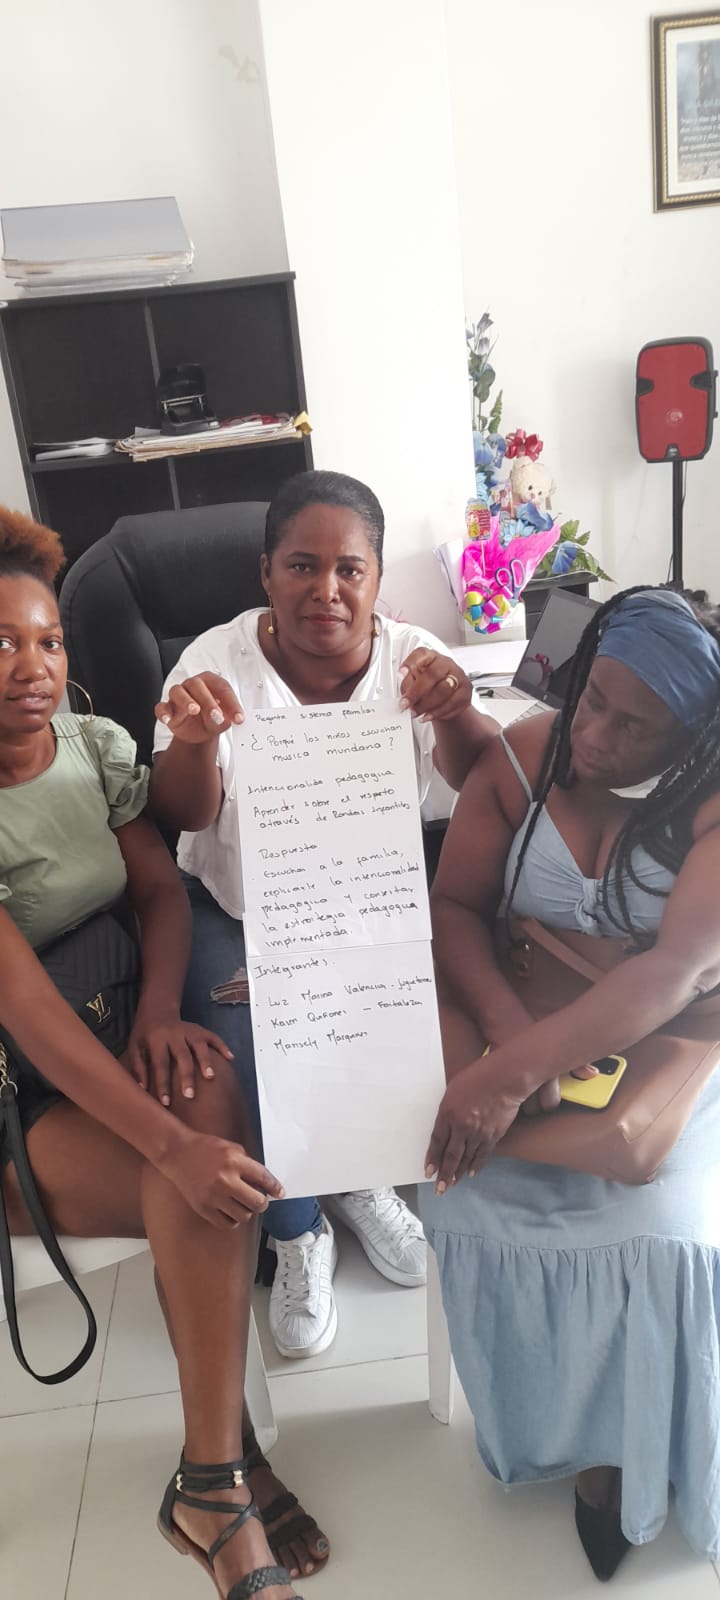 Pregunta sistema familiar
· ¿Porqué los niños escuchan
musica mundana?
Intencionalida pedagogica
Aprender sobre el respeto
através de Rondas Infantiles
Respuesta
· Escuchar a la familia,
explicarle la intencionalidad
pedagogica y consertar
la estrategia pedagogica
implementada.
Integrantes.
· Luz Marina Valencia - Jugueteros
· Karen Quiñones - Fortaleza
· Marisely Marquinez
LV